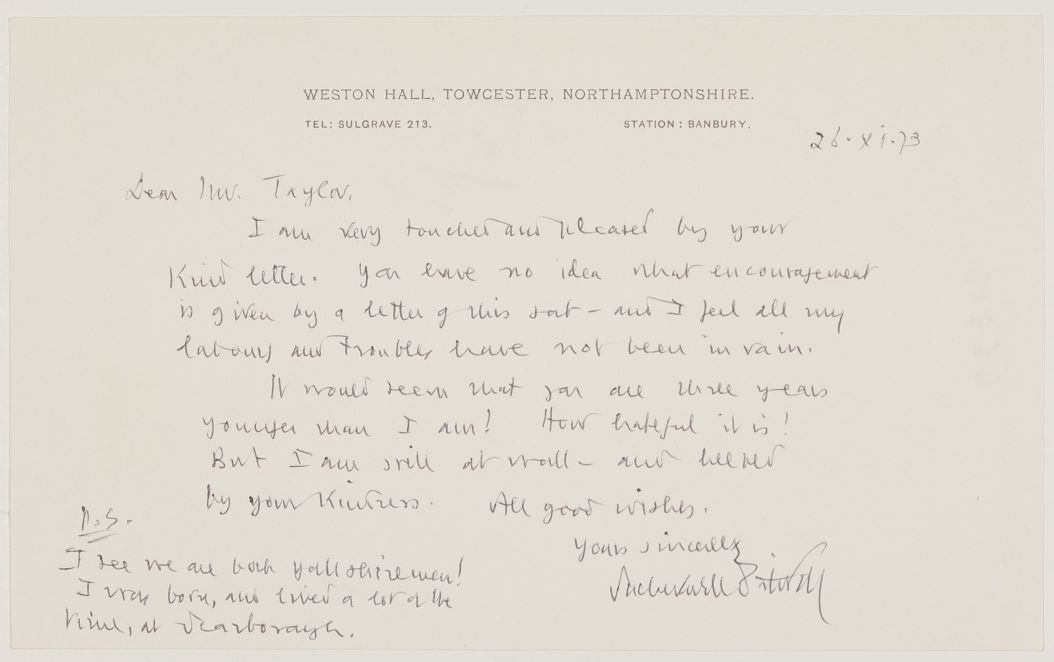 WESTON HALL, TOWCESTER, NORTHAMPTONSHIRE.
TEL: SULGRAVE 213. STATION: BANBURY.
26·XI·73
Dear Mr. Taylor,
I am very touched and pleased by your
kind letter. You have no idea what encouragement
is given by a letter of this sort – and I feel all my
labours and troubles have not been in vain.
It would seem that you are three years
younger than I am! How hateful it is!
But I am still at work – and helped
by your kindness. All good wishes.
Yours sincerely
Sacheverell Sitwell
P.S.
I see we are both Yorkshiremen!
I was born, and lived a lot of the
time, at Scarborough.